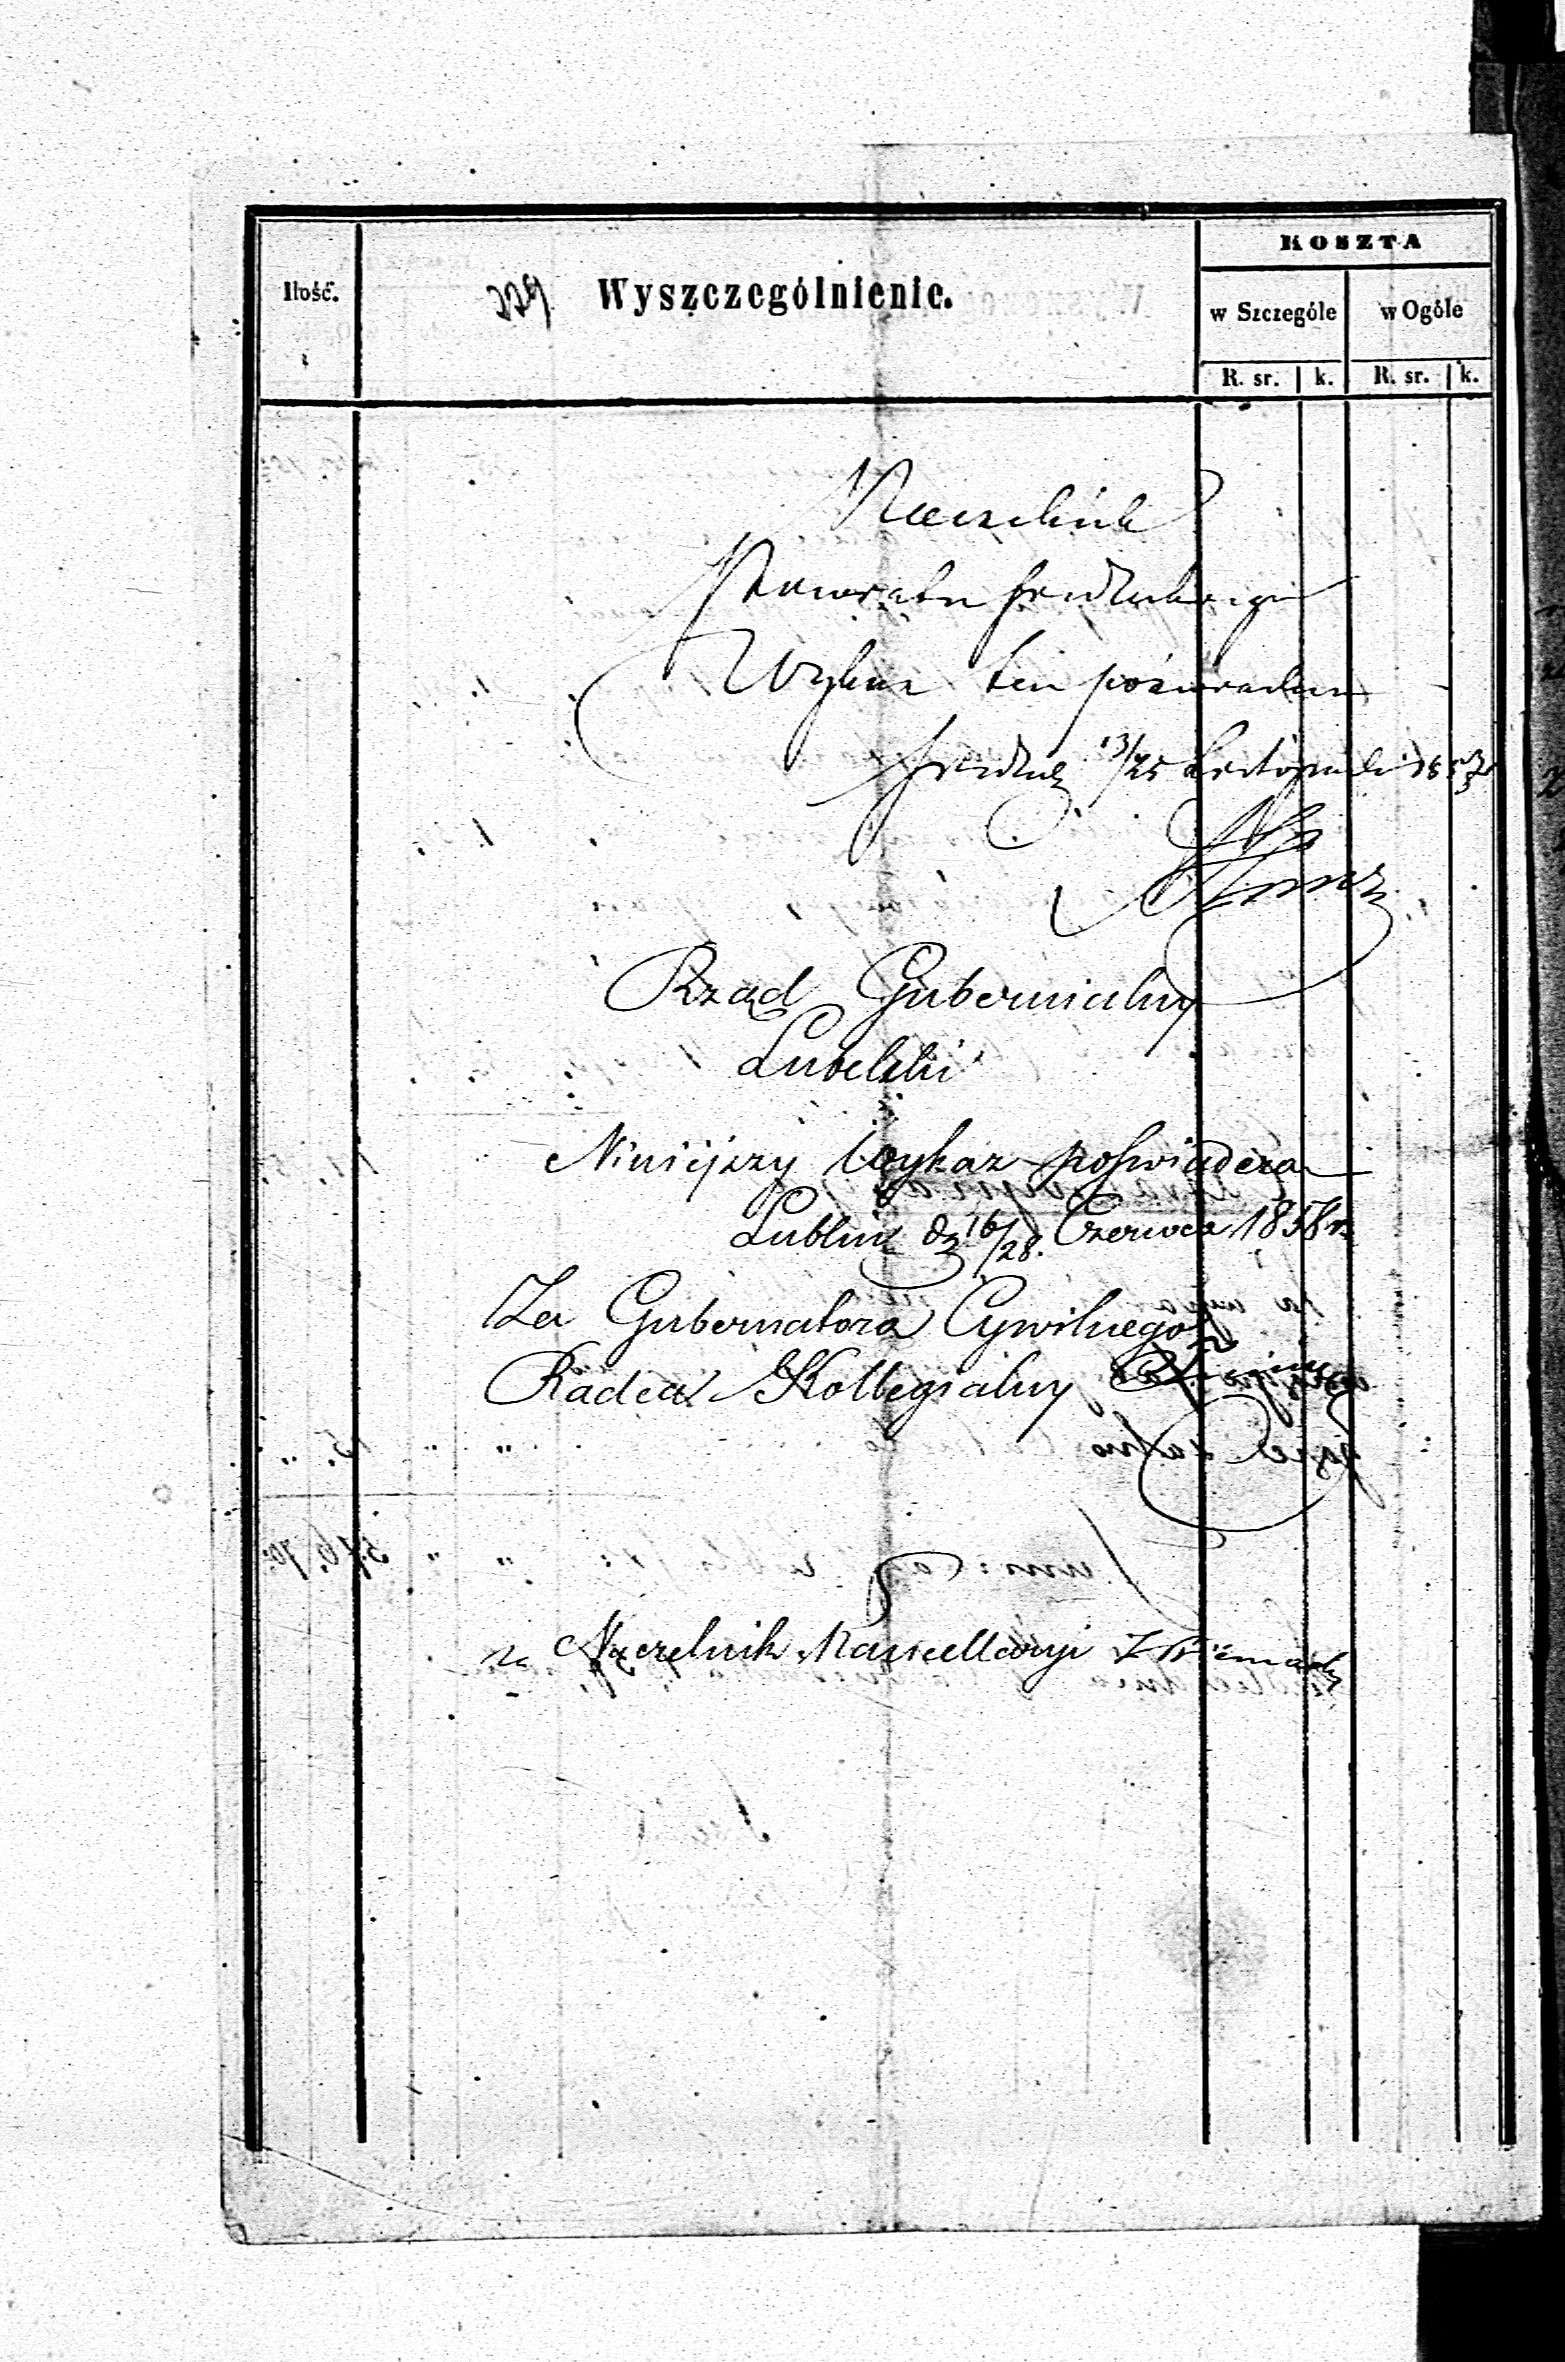 KOSZTA
Ilość.
Wyszczególnienie.
w Szczególe
w Ogóle
R. sr.
k.
R. sr.
k.
Naczelnik
Powiatu Siedleckiego
Wykaz ten poświadcza
Siedlce 13/25 Listopada 1857
Rząd Gubernialny
Lubelski
Niniejszy Wykaz poświadcza
Lublin d 16/28. Czerwca 1858 r.
Za Gubernatora Cywilnego
Radca Kollegialny
za Naczelnik Kancellaryi